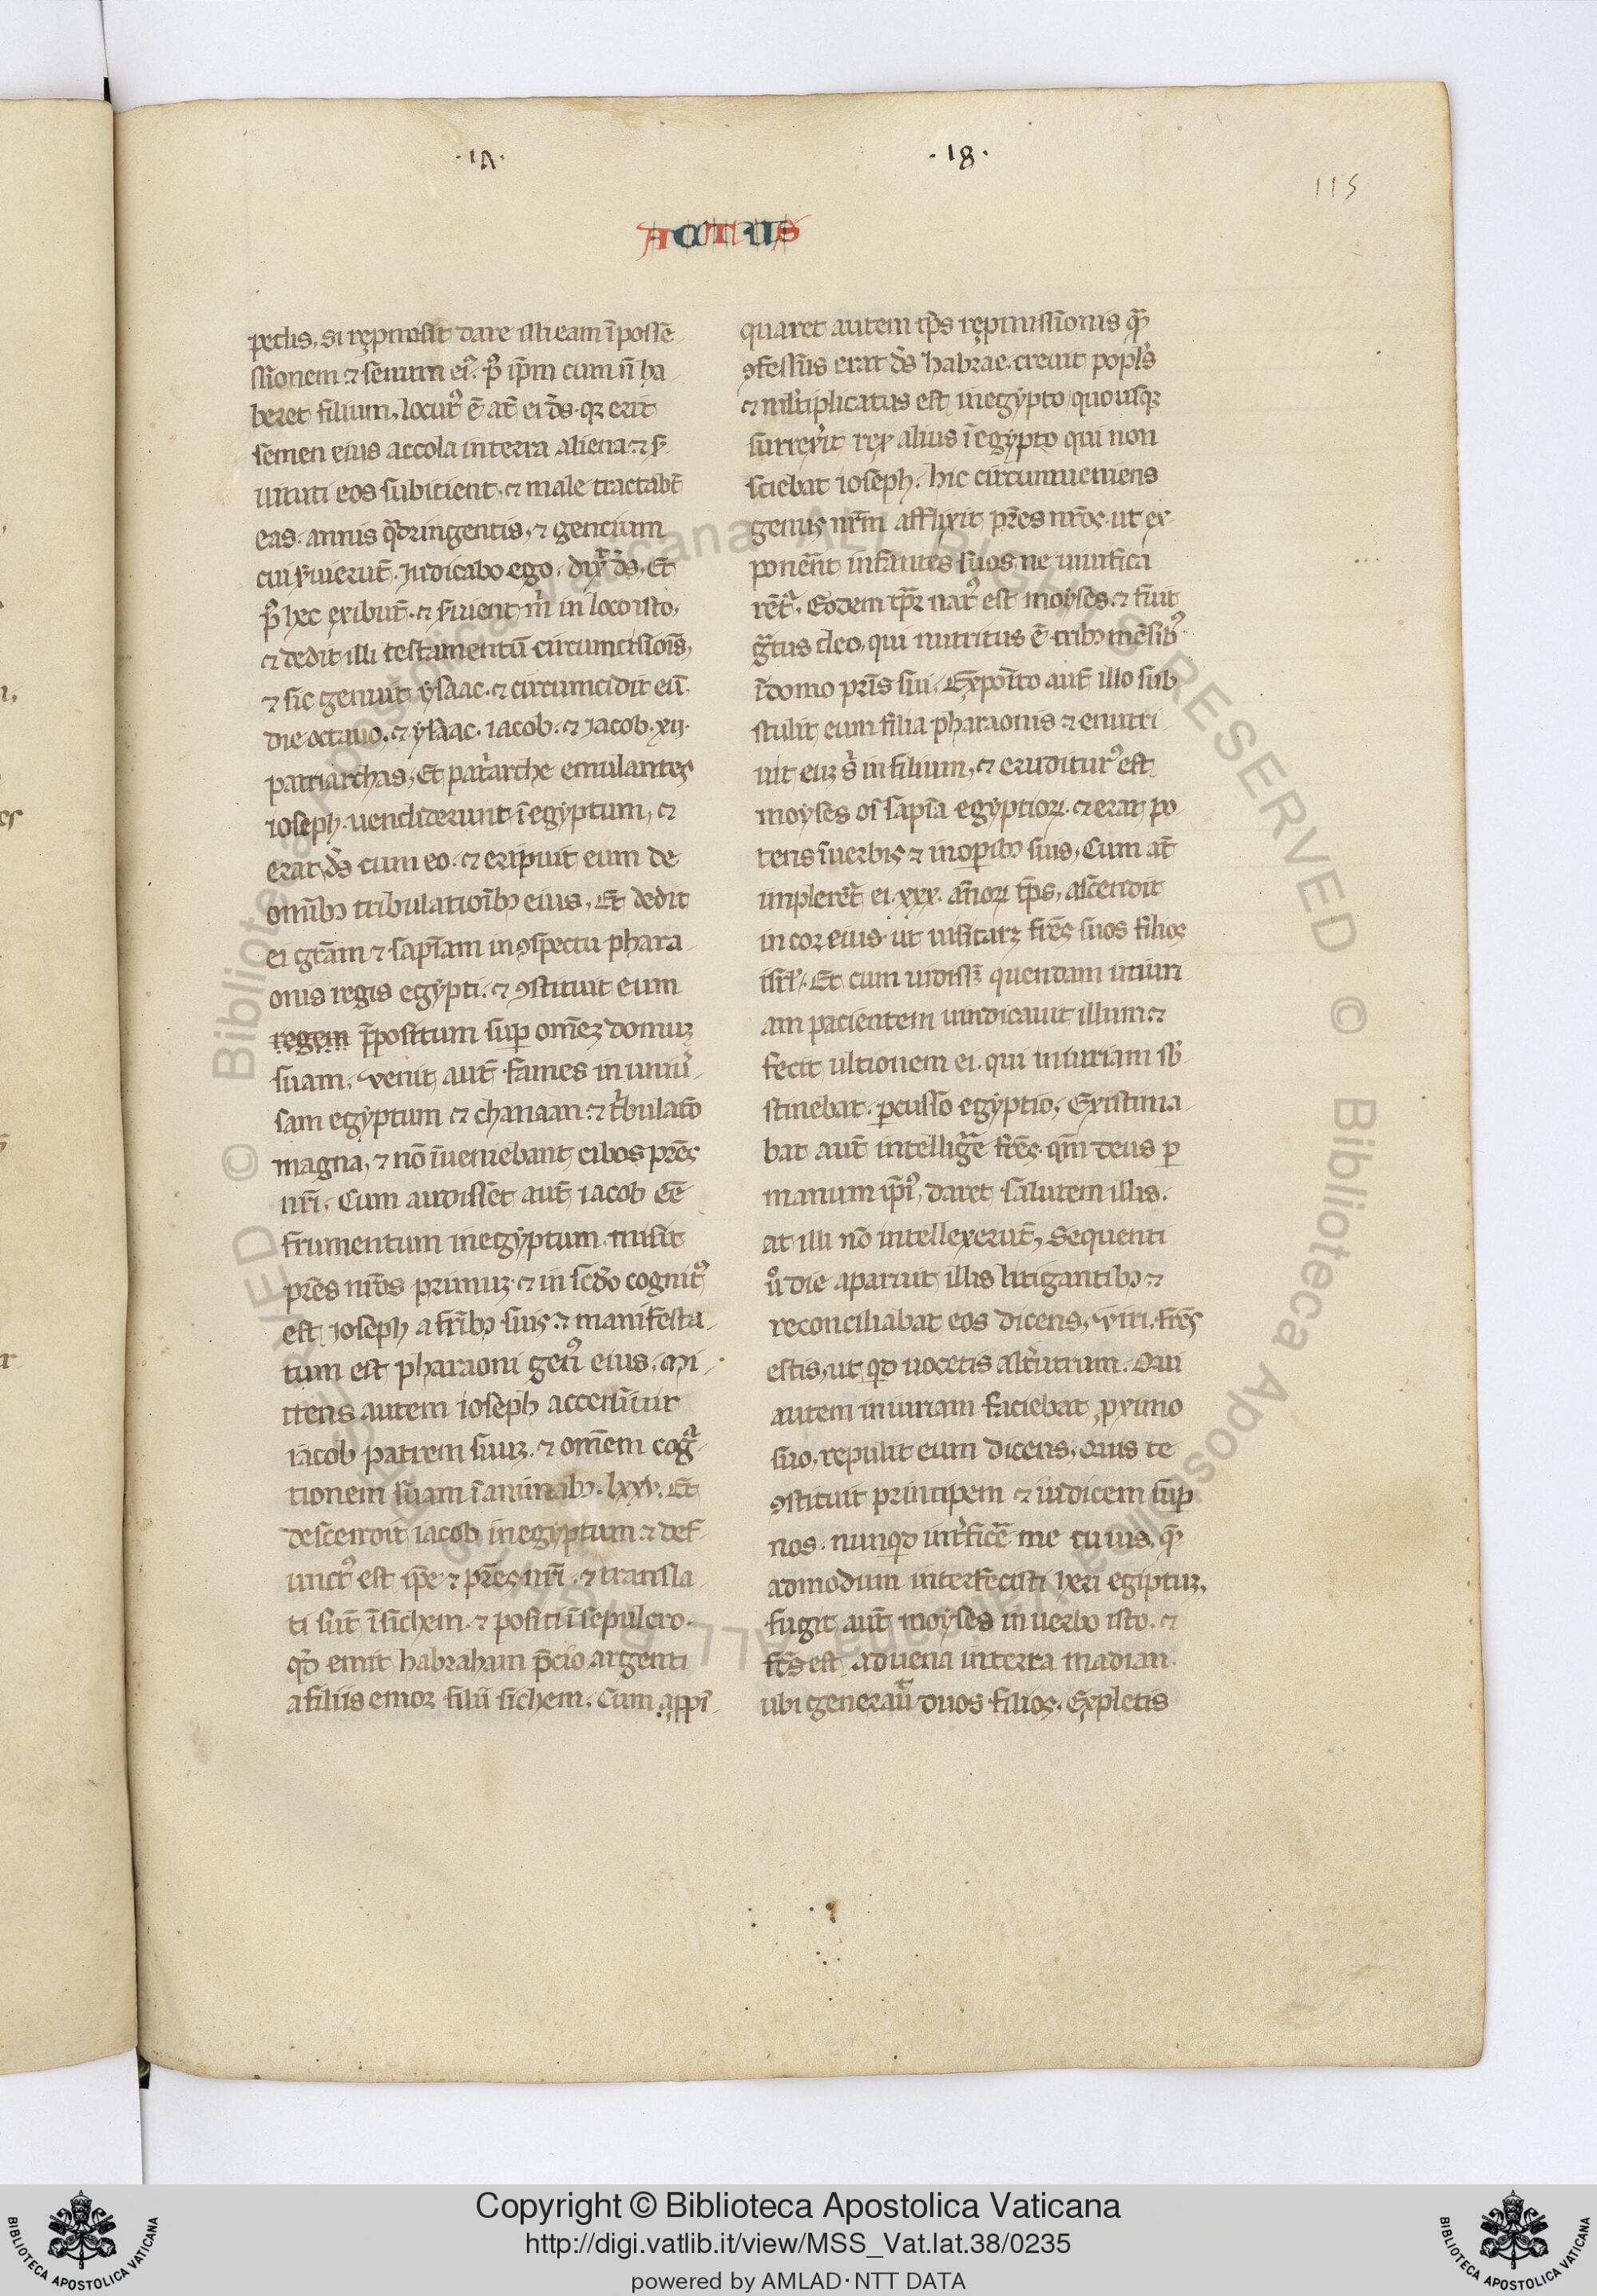 .17.
.18.
115
ACTUS
pedis, si repmisit dare illi eam ī possē
ssionem ⁊ semini ei⁹. p⁹ ip̄m cum ñ ha
beret filium, locut⁹ ē at̄ ei d̄s. qꝫ erit
semen eius accola in terra aliena. ⁊ s̓
uituti eos subicient, ⁊ male tractabt̄
eas. annis q̄dringentis, ⁊ gentium
cui s̓uierut̄. Iudicabo ego. dix̓ d̄s, Et
p⁹ hec exibut̄. ⁊ s̓uient m̓ in loco isto,
⁊ dedit illi testamentū circumcisiōis,
⁊ sic genuit ysaac. ⁊ circumcidit eū.
die octauo. ⁊ ysaac. iacob. ⁊ Iacob. xij.
patriarchas, Et pat̓arche emulantes
ioseph. uendiderunt ī egyptum, ⁊
erat d̄s cum eo. ⁊ eripuit eum de
omībꝫ tribulatioībꝫ eius, Et dedit
ei gr̄am ⁊ sapīam in ꝯspectu phara
onis regis egypti. ⁊ ꝯstituit eum
regem p̄positum sup̄ om̄eꝫ domuꝫ
suam. venit aut̄ fames in uniu̓
sam egyptum ⁊ chanaan. ⁊ t̓bulat̄o
magna, ⁊ nō īueniebant cibos pr̄es
nr̄i. Cum audisset aut̄ iacob ēē
frumentum in egyptum. misit
pr̄es nr̄os primuꝫ. ⁊ in scd̄o cognit⁹
est ioseph a fr̄ibꝫ suis ⁊ manifesta
tum est pharaoni gen⁹ eius. Mi
ttens autem ioseph accersiuit
iacob patrem suuꝫ. ⁊ om̄em cogͣ
tionem suam ī animabꝫ. lxxv. Et
descendit iacob in egyptum. ⁊ def
unct⁹ est ip̄e ⁊ pr̄es nr̄i. ⁊ transla
ti sūt ī sichem. ⁊ positi ī sepulcro.
qd̄ emit habraham p̄cio argenti
a filiis emor filii sichem. Cum appī
quaret autem tp̄s repmissionis qͣ
ꝯfessus erat d̄s habrae. creuit popl̓s
⁊ ml̓tiplicatus est in egypto quousqꝫ
surrex̓it rex alius ī egypto qui non
sciebat ioseph. hic circumueniens
genus nr̄m afflixit pr̄es nr̄os. ut ex
ponēt infantes suos ne uiuifica
rēt̓. Eodem tp̄r nat⁹ est moyses. ⁊ fuit
gͣtus deo, qui nutritus ē tribꝫ mēsibꝫ
ī domo pr̄is sui. Exposīto aut̄ illo sub
stulit eum filia pharaonis ⁊ enutri
uit euꝫ s̓ in filium, ⁊ eruditur⁹ est
moyses oī sapīa egyptioꝝ. ⁊ erat po
tens ī uerbis ⁊ in oꝑibꝫ suis, Cum at̄
impleret̓ ei. xxx. annoꝝ tp̄s, ascendit
in cor eius. ut uisitarꝫ fr̄es suos filios
isrl̄. Et cum uidissꝫ quendam iniuri
am pacientem uindicauit illum. ⁊
fecit ultionem ei. qui iniuriam sb̓
stinebat. ꝑcusso egyptio, Existima
bat aut̄ intelligͤe fr̄es. qm̄ deus ꝑ
manum ip̄i⁹, daret salutem illis.
at illi nō intellexerut̄, Sequenti
u̓ die aparuit illis litigantibꝫ. ⁊
reconciliabat eos dicens, viri. fr̄es
estis, ut qd̓ nocetis alt̓utrum. Qui
autem iniuriam faciebat ꝓximo
suo, repulit eum dicens, Quis te
ꝯstituit principem ⁊ iudicem sup̄
nos. nunqd̓ int̓ficē me tu uis, qͤ
admodum interfecisti heri egiptiuꝫ,
fugit aut̄ moyses in uerbo isto. ⁊
fc̄s est aduena in terra madian.
ubi generauit duos filios. Expletis
Copyright © Biblioteca Apostolica Vaticana
http://digi.vatlib.it/view/MSS_Vat.lat.38/0235
powered by AMLAD·NTT DATA
BIBLIOTECA APOSTOLICA VATICANA
BIBLIOTECA APOSTOLICA VATICANA